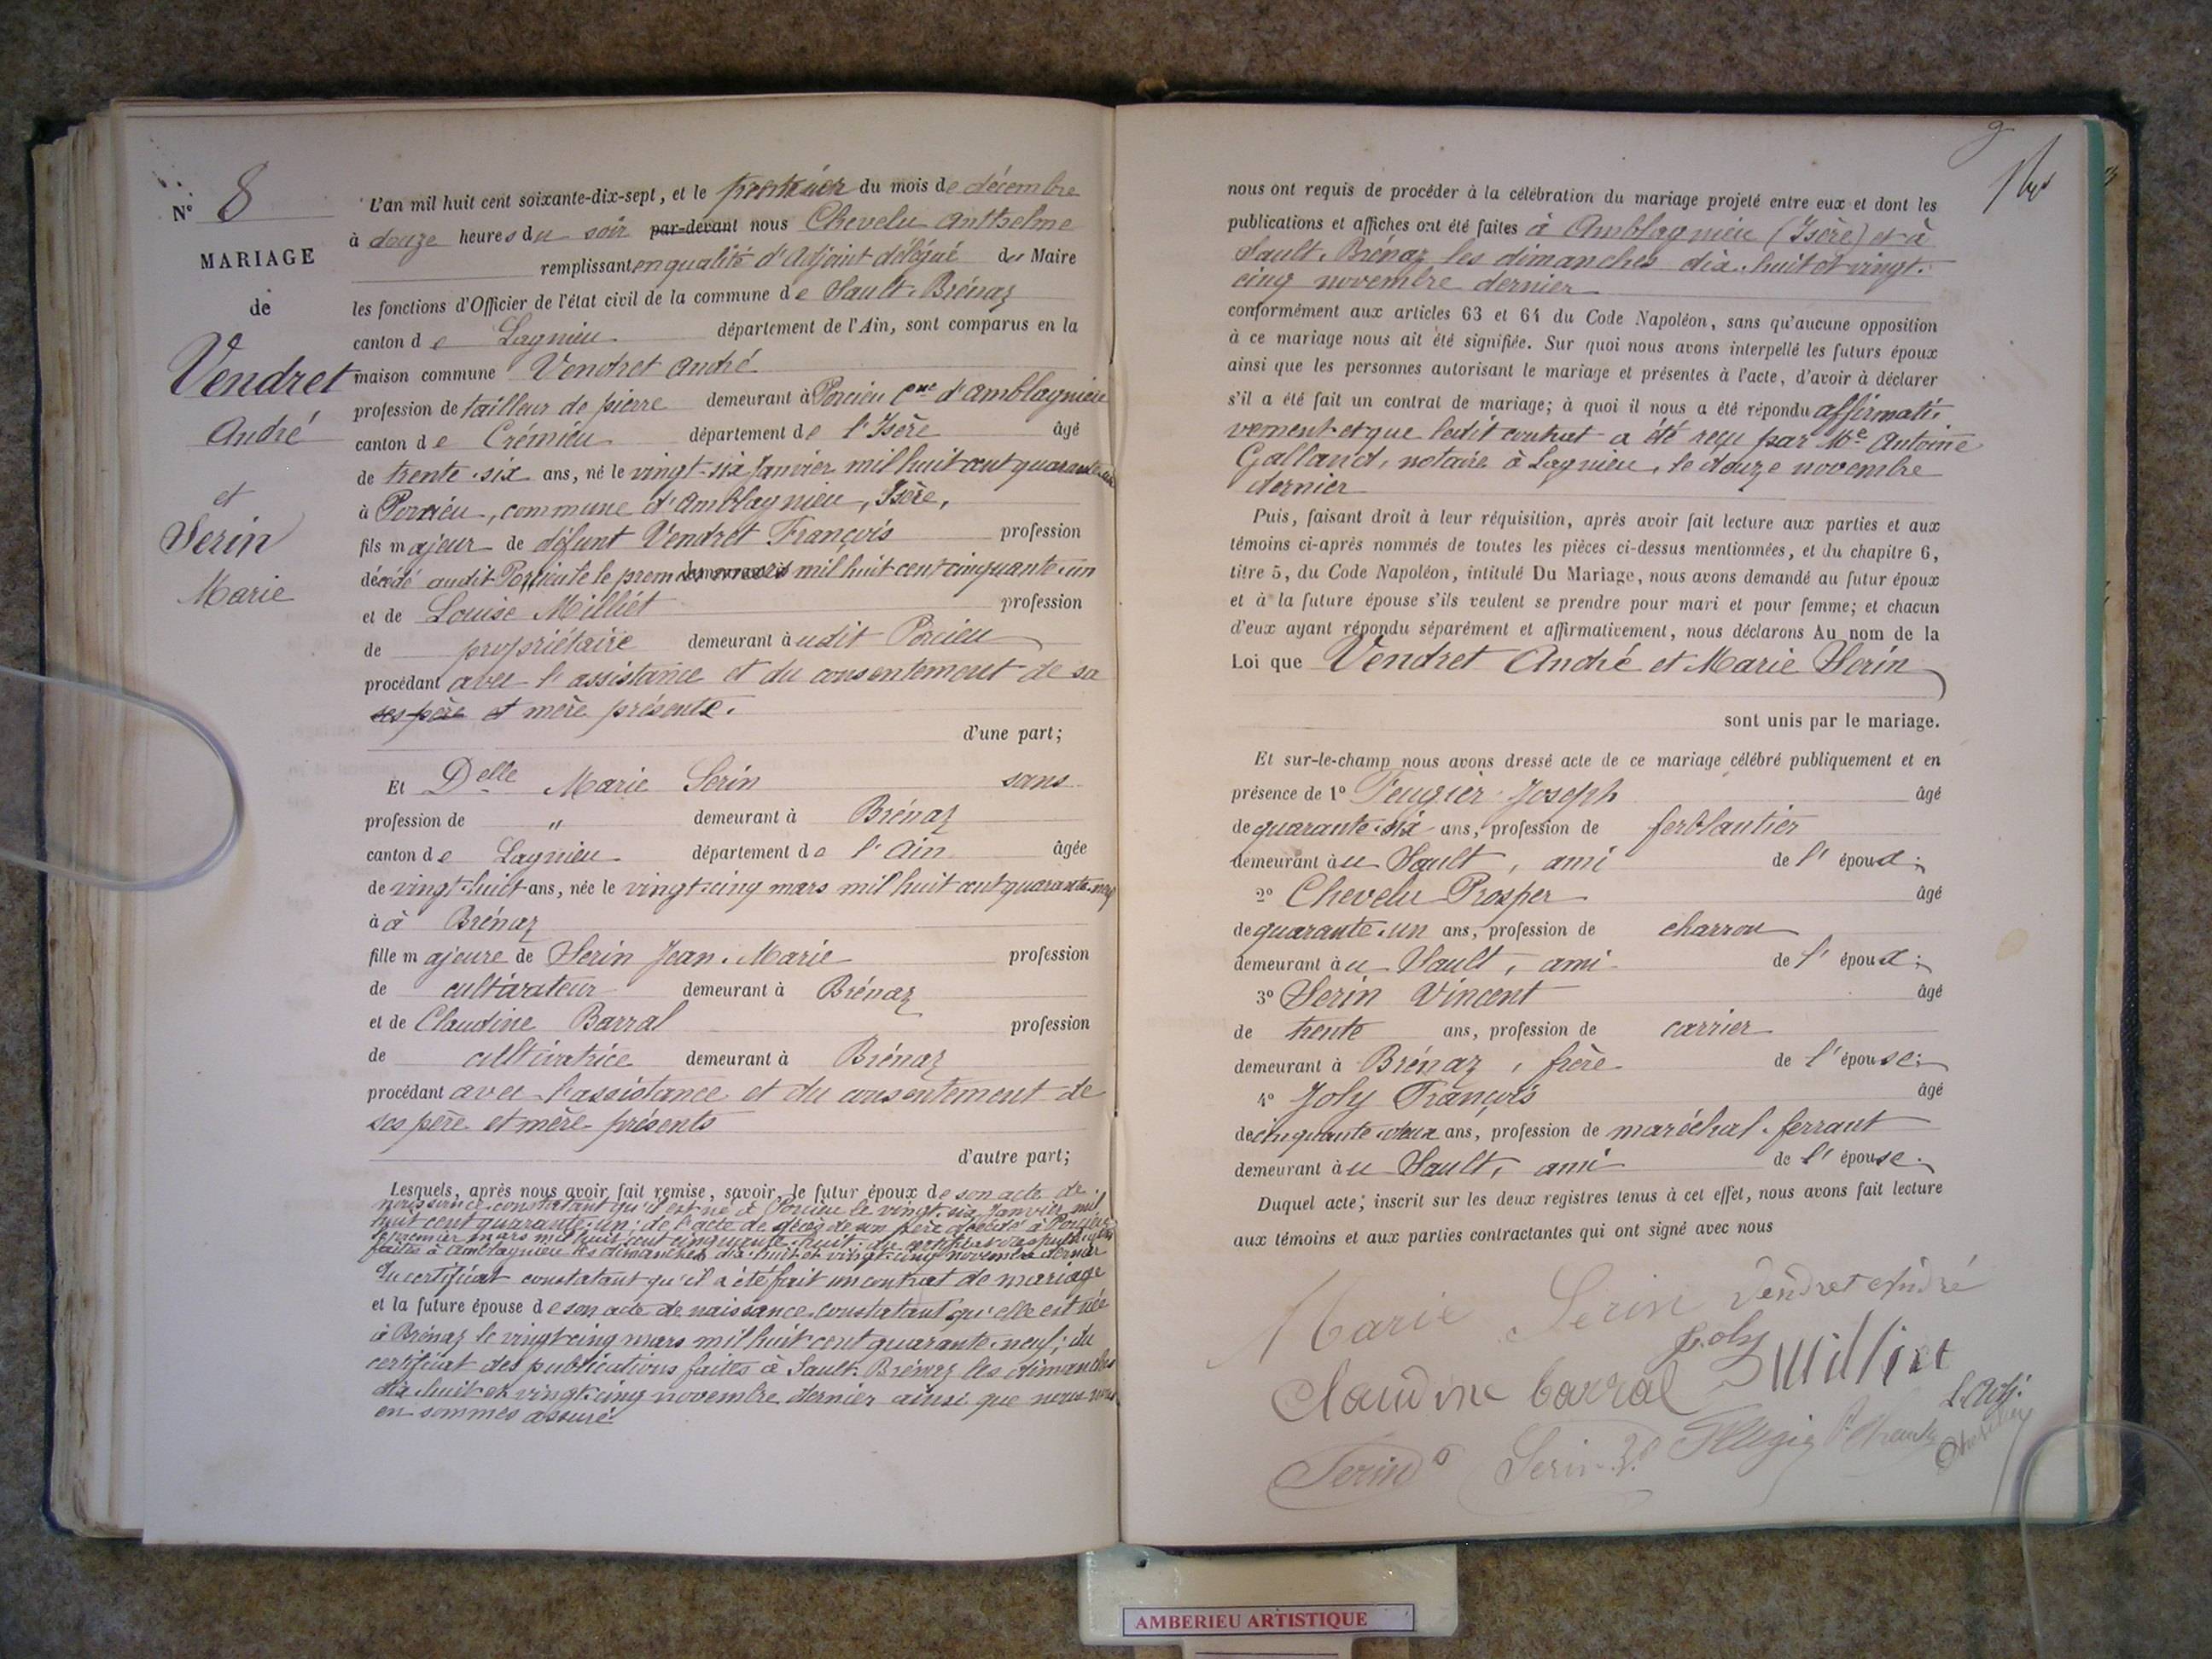 N° 8
MARIAGE
de
Vendret
André
et
Serin
Marie
L'an mil huit cent soixante-dix-sept, et le premier du mois de décembre
à douze heures du soir par-devant nous Chevelu Anthelme
remplissant en qualité d'Adjoint délégué du Maire
les fonctions d'Officier de l'état civil de la commune de Sault-Brénaz
canton de Lagnieu département de l'Ain, sont comparus en la
maison commune Vendret André
profession de tailleur de pierre demeurant à Porcieu Cne d'Amblagnieu
canton de Crémieu département de l'Isère âgé
de trente-six ans, né le vingt-six Janvier mil huit cent quarante-un
à Porcieu, commune d'Amblagnieu, Isère,
fils majeur de défunt Vendret François profession
décédé audit Porcieu le premier mars mil huit cent cinquante-un
et de Louise Milliet profession
de propriétaire demeurant audit Porcieu
procédant avec l'assistance et du consentement de sa
ses père et mère présente.
d'une part;
Et Delle Marie Serin sans
profession de " demeurant à Brénaz
canton de Lagnieu département de l'Ain âgée
de vingt-huit ans, née le vingt-cinq mars mil huit cent quarante-neuf
à à Brénaz
fille majeure de Serin Jean-Marie profession
de cultivateur demeurant à Brénaz
et de Claudine Barral profession
de cultivatrice demeurant à Brénaz
procédant avec l'assistance et du consentement de
ses père et mère présents
d'autre part;
Lesquels, après nous avoir fait remise, savoir, le futur époux de son acte de
naissance constatant qu'il est né à Porcieu le vingt-six Janvier mil
huit cent quarante-un; de l'acte de décès de son père décédé à Porcieu
le premier mars mil huit cent cinquante-huit; du certificat des publications
faites à Amblagnieu les dimanches dix-huit et vingt-cinq novembre dernier
Du certificat constatant qu'il a été fait un contrat de mariage
et la future épouse de son acte de naissance constatant qu'elle est née
à Brénaz le vingt-cinq mars mil huit cent quarante-neuf; du
certificat des publications faites à Sault-Brénaz les dimanches
dix-huit et vingt-cinq novembre dernier ainsi que nous nous
en sommes assuré
9
nous ont requis de procéder à la célébration du mariage projeté entre eux et dont les
publications et affiches ont été faites à Amblagnieu (Isère) et à
Sault-Brénaz les dimanches dix-huit et vingt-
cinq novembre dernier
conformément aux articles 63 et 64 du Code Napoléon, sans qu'aucune opposition
à ce mariage nous ait été signifiée. Sur quoi nous avons interpellé les futurs époux
ainsi que les personnes autorisant le mariage et présentes à l'acte, d'avoir à déclarer
s'il a été fait un contrat de mariage; à quoi il nous a été répondu affirmati-
vement et que ledit contrat a été reçu par Me Antoine
Galland, notaire à Lagnieu, le douze novembre
dernier
Puis, faisant droit à leur réquisition, après avoir fait lecture aux parties et aux
témoins ci-après nommés de toutes les pièces ci-dessus mentionnées, et du chapitre 6,
titre 5, du Code Napoléon, intitulé Du Mariage, nous avons demandé au futur époux
et à la future épouse s'ils veulent se prendre pour mari et pour femme; et chacun
d'eux ayant répondu séparément et affirmativement, nous déclarons Au nom de la
Loi que Vendret André et Marie Serin
sont unis par le mariage.
Et sur-le-champ nous avons dressé acte de ce mariage célébré publiquement et en
présence de 1° Feugier Joseph âgé
de quarante-six ans, profession de ferblantier
demeurant au Sault, ami de l'époux;
2° Chevelu Prosper âgé
de quarante-un ans, profession de charron
demeurant au Sault, ami de l'époux;
3° Serin Vincent âgé
de trente ans, profession de carrier
demeurant à Brénaz, frère de l'épouse;
4° Joly François âgé
de cinquante-deux ans, profession de maréchal-ferrant
demeurant au Sault, ami de l'épouse.
Duquel acte, inscrit sur les deux registres tenus à cet effet, nous avons fait lecture
aux témoins et aux parties contractantes qui ont signé avec nous
Marie Serin Vendret André
Joly
Claudine barral
L'Adj.
Serin Serin
AMBERIEU ARTISTIQUE